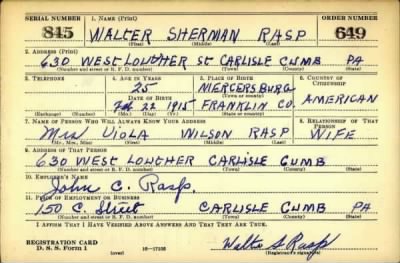 SERIAL NUMBER 1. NAME (Print) ORDER NUMBER
845 WALTER SHERMAN RASP 649
(First) (Middle) (Last)
2. ADDRESS (Print)
630 WEST LOUTHER ST CARLISLE CUMB PA
(Number and street or R. F. D. number) (Town) (County) (State)
3. TELEPHONE 4. AGE IN YEARS 5. PLACE OF BIRTH 6. COUNTRY OF CITIZENSHIP
25 MERCERSBURG
DATE OF BIRTH (Town or county)
Feb 22 1915 FRANKLIN CO. AMERICAN
(Exchange) (Number) (Mo.) (Day) (Yr.) (State or country)
7. NAME OF PERSON WHO WILL ALWAYS KNOW YOUR ADDRESS 8. RELATIONSHIP OF THAT PERSON
Mrs VIOLA WILSON RASP WIFE
(Mr., Mrs., Miss) (First) (Middle) (Last)
9. ADDRESS OF THAT PERSON
630 WEST LOWTHER CARLISLE CUMB
(Number and street or R. F. D. number) (Town) (County) (State)
10. EMPLOYER'S NAME
John C. Rasp.
11. PLACE OF EMPLOYMENT OR BUSINESS
150 C. Street CARLISLE CUMB PA
(Number and street or R. F. D. number) (Town) (County) (State)
I AFFIRM THAT I HAVE VERIFIED ABOVE ANSWERS AND THAT THEY ARE TRUE.
REGISTRATION CARD
D. S. S. Form 1 (over) 16—17105 Walter S Rasp
(Registrant's signature)